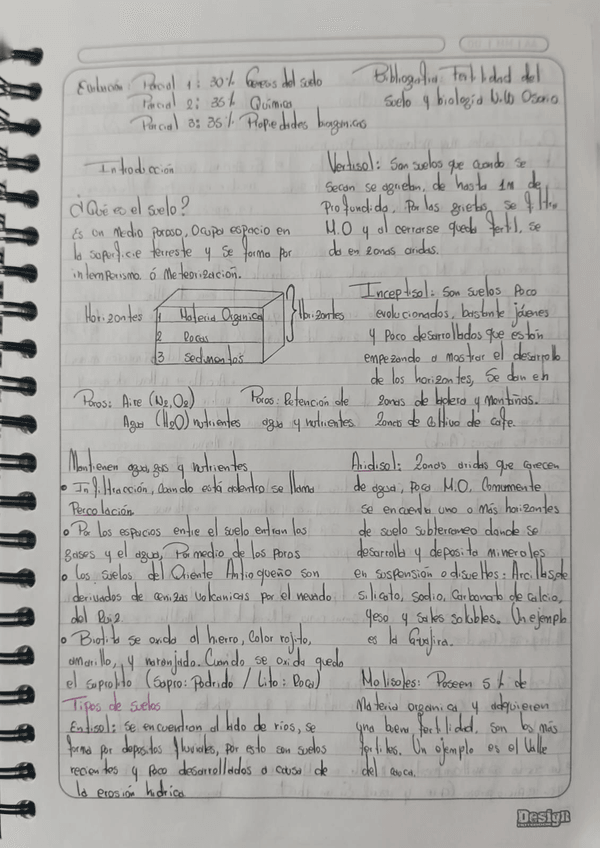 Evaluación: Parcial 1: 30% Genesis del suelo
Parcial 2: 35% Química
Parcial 3: 35% Propiedades
Introducción
¿Qué es el suelo?
Es un Medio Poroso, Ocupa espacio en
la superficie terrestre y se forma por
intemperismo ó Meteorización.
Horizontes
1 Materia Organica
2 Rocas
3 Sedimentos
Horizontes
Poros: Aire (N2, O2)
Agua (H2O) nutrientes
Poros: Retención de
agua y nutrientes
Mantienen agua, gas y nutrientes
• Infiltracción, Cuando está adentro se llama
Percolación
• Por los espacios entre el suelo entran los
gases y el agua, Por medio de los Poros
• Los suelos del Oriente Antioqueño son
derivados de cenizas volcanicas por el nevado
del Ruiz
• Biotita se oxida al hierro, Color rojito,
amarillo, y naranjado. Cuando se oxida queda
el saprolito (Sapro: Podrido / Lito: Roca)
Tipos de suelos
Entisol: Se encuentran al lado de ríos, se
forma por depositos fluviales, por esto son suelos
recientes y Poco desarrollados a causa de
la erosión hidrica
Bibliografia Fertilidad del
suelo y biologia Osorio
Vertisol: Son suelos que cuando se
Secan se agrietan, de hasta 1m de
Profundida. Por las grietas, se filtra
M.O y al cerrarse queda fertil, se
da en zonas aridas.
Inceptisol: Son suelos Poco
evolucionados, bastante jóvenes
y Poco desarrollados que están
empezando a mostrar el desarrollo
de los horizontes, Se dan en
zonas de ladera y montañas.
Zonas de Cultivo de cafe.
Aridisol: Zonas aridas que carecen
de agua, poca M.O, Comunmente
se encuentra uno o más horizontes
de suelo subterraneo donde se
desarrolla y deposita minerales
en suspensión o disueltos: Arcillas de
silicato, sodio, Carbonato de calcio,
yeso y sales solubles. Un ejemplo
es la Guajira.
Molisoles: Poseen 5% de
Materia organica y adquieren
una buena fertilidad, son los más
fertiles. Un ejemplo es el Valle
del cauca.
Design